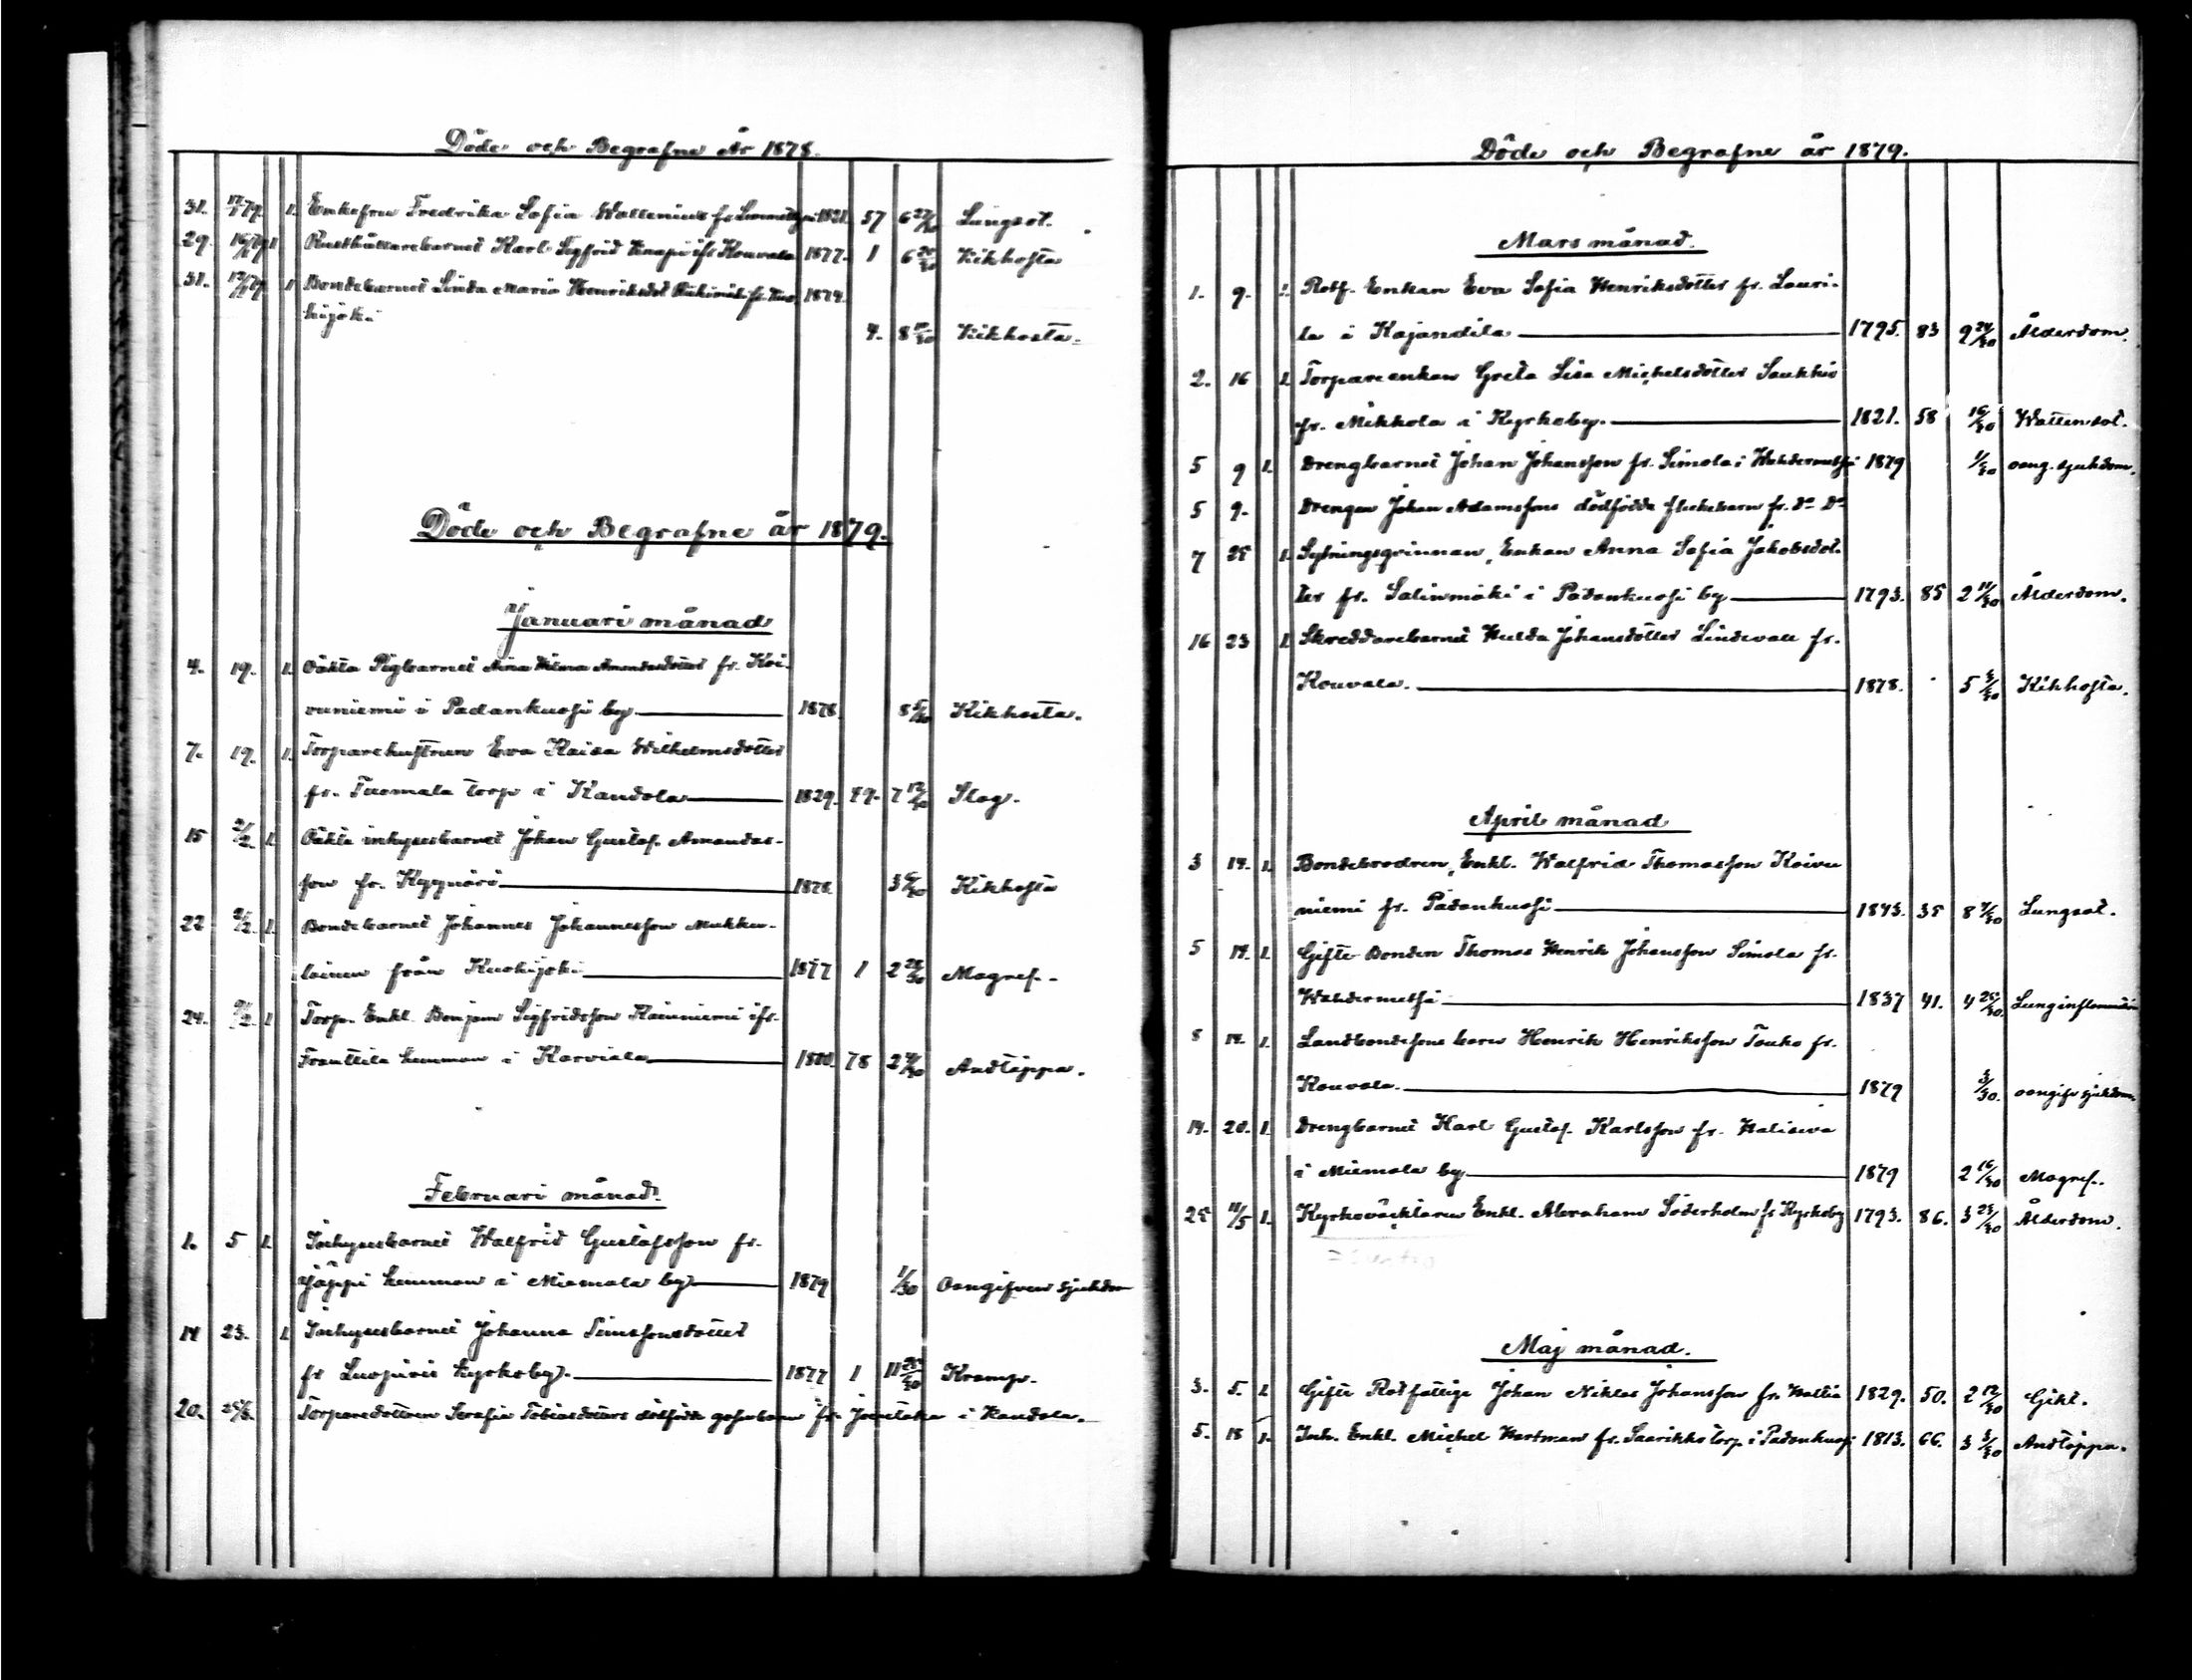 Döde och Begrafne År 1878.
31. 12/1 79. 1. Enkefru Fredrika Sofia Wallenius fr 1821. 57 6 27/30 Lungsot.
29. 1. Rusthållarebarnet Karl Sigfrid Knapi ifr Kouvala 1877. 1 6 Kikhosta
31. 1 Bondebarnet Linda Maria Henriksdot fr. Kuo- 1874.
hijoki
4. 8 Kikhosta.
Döde och Begrafne år 1879.
Januari månad
4. 19. 1. Oäkta Pigbarnet Aina Wilma Amandasdotter fr. Koi-
vuniemi i Padankuosi by 1878. 8 5/30 Kikhosta.
7. 19. 1. Torparehustrun Eva Kaisa Wilhelmsdotter
fr. Tuomala torp i Kandola 1829. 49. 7 12/30 Slag.
15 2/2 1. Oäkta inhysesbarnet Johan Gustaf Amandas-
son fr. Kyynärö 1878. 3 Kikhosta
22 2/2. 1. Bondebarnet Johannes Johannesson Mukku-
lainen från Kuohijoki 1877 1 2 28/30 Magref.
24. 2/2. 1 Torp. Enkl. Benjam Sigfridsson Kainiemi ifr.
Franttila hemman i Karviala 1800. 78 2 Andtäppa.
Februari månad.
1. 5 1. Inhysesbarnet Walfrid Gustafsson fr.
Jäppi hemman i Miemala by 1879 1/30 Oangifven sjukdom
14 23. 1. Inhysesbarnet Johanna Simssonsdotter
fr Kyrkoby. 1877 1 11 Kramp.
20. Torparedottren Serafia Tobiasdotters dödfödde gossebarn fr. i Kandola.
Döde och Begrafne år 1879.
Mars månad.
1. 9. 1. Rotf. Enkan Eva Sofia Henriksdotter fr. Lauri-
la i Kajandila 1795. 83 9 24/30 Ålderdom.
2. 16 1. Torpareenkan Greta Lisa Michelsdotter Saukko
fr. Mikkola i Kyrkoby. 1821. 58 16/30 Wattensot.
5 9 1. Drengbarnet Johan Johansson fr. Simola i Wahdermetsä 1879 1/30 oang. sjukdom.
5 9. Drengen Johan Adamssons dödfödda flickebarn fr. Do Do
7 25 1. Sytningsqvinnan, Enkan Anna Sofia Jakobsdot-
ter fr. Salinmäki i Padankuosi by 1793. 85 2 11/30 Ålderdom.
16 23 1. Skreddarebarnet Hulda Johansdotter Lindevall fr.
Kouvala. 1878. 5 3/30 Kikhosta.
April månad
3 14. 1. Bondebrodren, Enkl. Walfrid Thomasson Koivu
niemi fr. Padankuosi 1843. 35 8 7/30 Lungsot.
5 14. 1. Gifte Bonden Thomas Henrik Johansson Simola fr.
Wahdermetsä 1837 41. 4 25/30. Lunginflammation
8 14. 1. Landbondesons barn Henrik Henriksson Touko fr.
Kouvala. 1879 3/30. oangifv sjukdom.
14. 20. 1. Drengbarnet Karl Gustaf Karlsson fr. Walieva
i Miemala by 1879 2 16/30 Magref.
25 11/5 1. Kyrkoväcktaren Enkl. Abraham Söderholm fr Kyrkoby 1793. 86. 3 23/30 Ålderdom.
Maj månad.
3. 5. 1. Gifte Rotfattige Johan Niklas Johansson fr. 1829. 50. 2 12/30 Gikt.
5. 18 1. Inh. Enkl. Michel Hartman fr. Saarikko torp i Padankuosi 1813. 66. 3 3/30 Andtäppa.